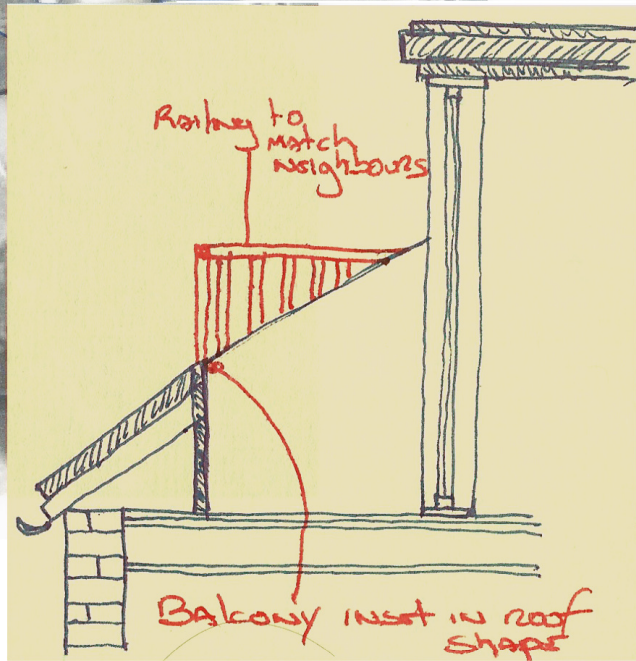 Railing to
match
neighbours
Balcony inset in roof
shape